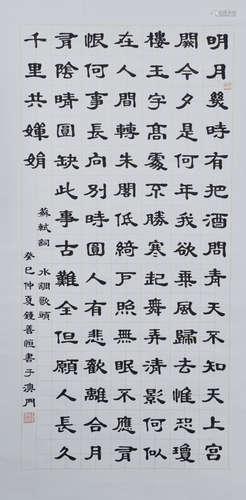 明月幾時有把酒問青天不知天上宮
闕今夕是何年我欲乘風歸去惟恐瓊
樓玉宇高處不勝寒起舞弄清影何似
在人間轉朱閣低綺戶照無眠不應有
恨何事長向別時圓人有悲歡離合月
有陰晴圓缺此事古難全但願人長久
千里共嬋娟
蘇軾詞 水調歌頭
癸巳仲夏鍾善恒書于澳門